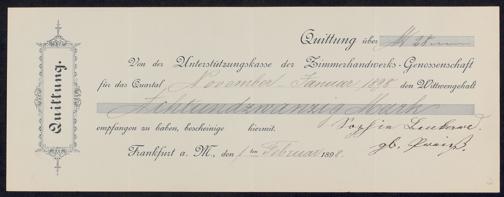 Quittung.
Quittung über M 28
Von der Unterstützungskasse der Zimmerhandwerks-Genossenschaft
für das Quartal November - Januar 1898 den Wittwengehalt
Achtundzwanzig Mark
empfangen zu haben, bescheinige hiermit. Sophie
Frankfurt a. M., den 1ten Februar 1898. gb.